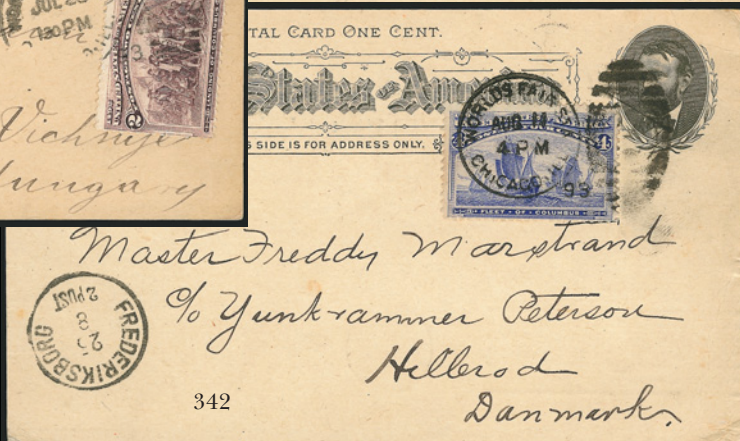 JUL 28
30 PM
Vichnye
Hungary
TAL CARD ONE CENT.
States of America
S SIDE IS FOR ADDRESS ONLY.
WORLD'S FAIR STA.
AUG 11
4 PM
93
CHICAGO, ILL.
FLEET OF COLUMBUS
Master Freddy Marstrand
c/o Yunkrammer Peterson
Hillerod
Danmark.
FREDERIKSBORG
25
8
2 POST
342